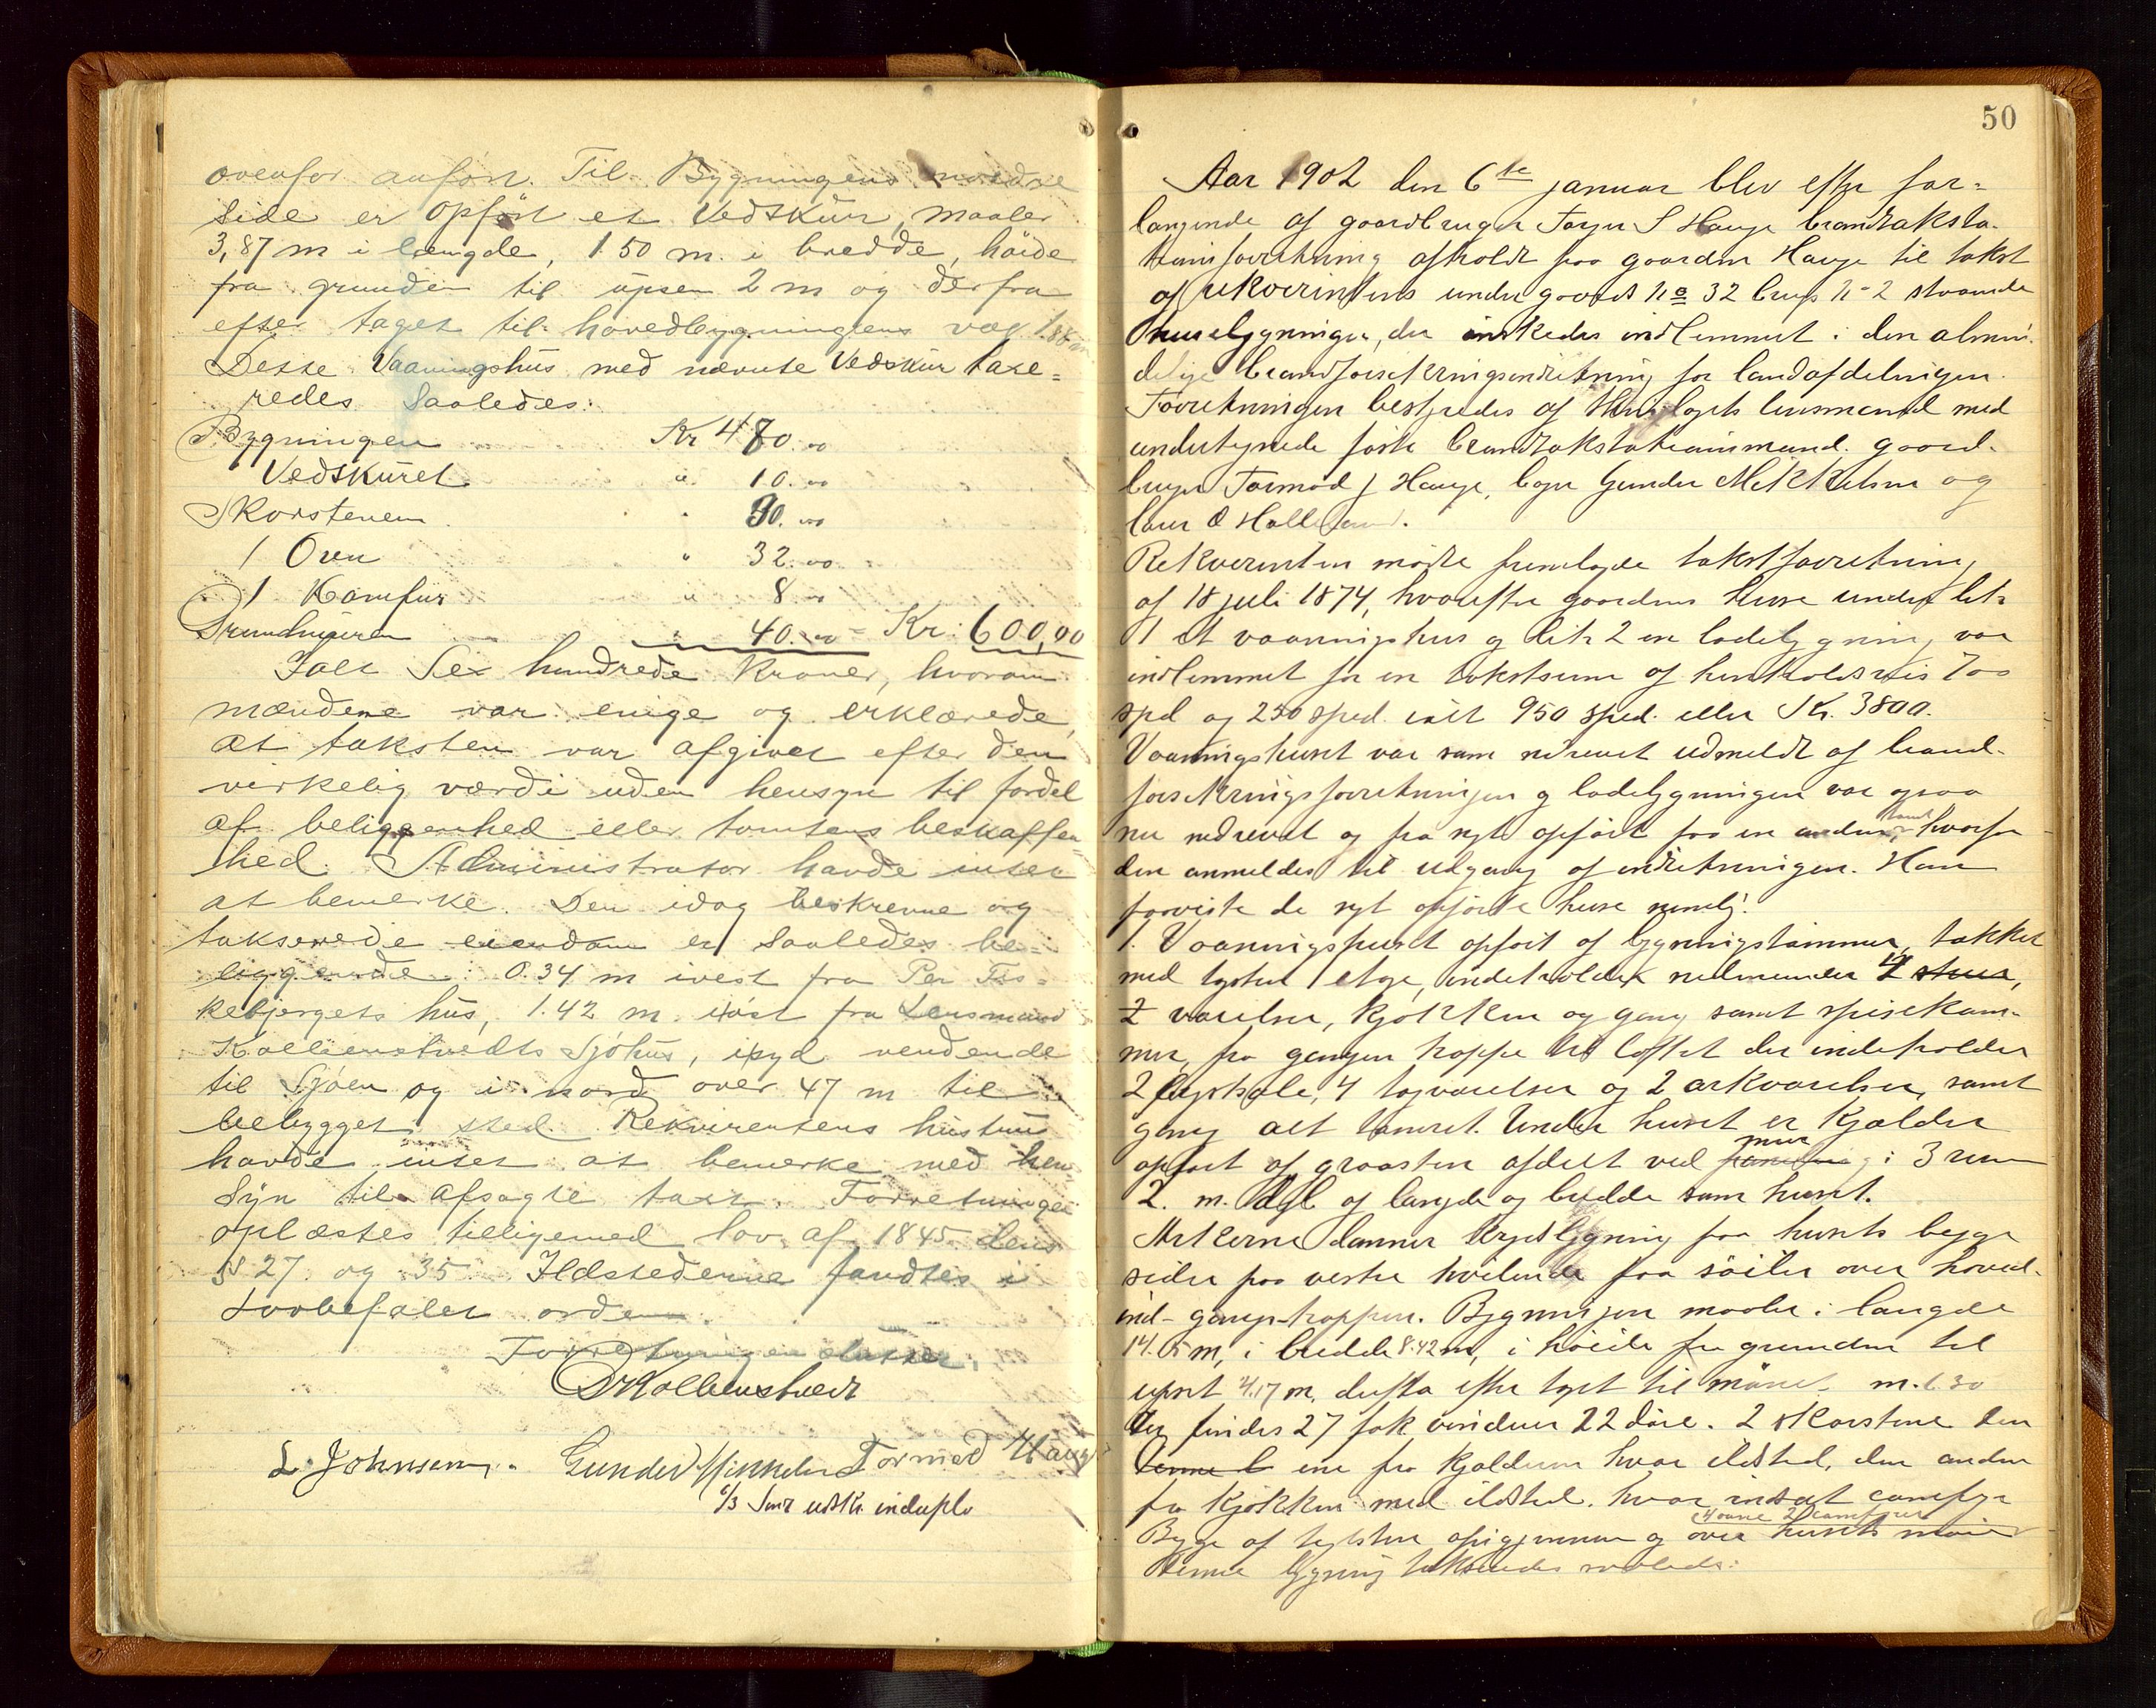 ovenfor anført. Til Bygningens nordre
side er opført et Vedskur, maaler
3,87 m i længde, 1.50 m. i bredde, høide
fra grunden til upsen 2 m og derfra
efter taget til hovedbygningens væg 1.88 m
Dette Vaaningshus med nævnte Vedskur taxe=
redes Saaledes:
Bygningen Kr 480.00
Vedskuret " 10.00
Skorstenen " 30.00
1 Oven " 32.00
1 Komfur " 8.00
Grundmuren " 40.00 = Kr: 600,00
Ialt Sex hundrede Kroner, hvorom
mændene var enige og erklærede,
at taksten var afgivet efter den
virkelig værdi uden hensyn til fordel
af beliggenhed eller tomtens beskaffen=
hed. Administrator havde intet
at bemerke. Den idag beskrevne og
takserede eiendom er saaledes be=
liggende: 0.34 m ivest fra Per Fis=
kebjergets hus, 1.42 m. iøst fra Lensmand
Kollenstvedts Sjøhus, isyd vendende
til Sjøen og i nord over 47 m til
bebygget sted. Rekvirentens hustru
havde intet at bemerke med hen
syn til afsagte taxt. Forretningen
oplæstes tilligemed lov af 1845 dens
§§ 27 og 35. Ildstederne fandtes i
lovbefalet orden.
Forretningen sluttet.
Kollenstvedt
L. Johnsen. Gunder Mikkelsen Tormod Hauge
6/3 Sendt udskr. induplo
50
Aar 1902 den 6te januar blev efter for=
langende af gaardbruger Torger S Hauge brandtaksta-
tionsforretning afholdt paa gaarden Hauge til takst
af rekvirentens under gaards No 32 brugs No 2 staaende
husebygninger, der ønskedes indlemmet i den almin-
delige brandforsikringsindretning for landafdelingen.
Forretningen bestyredes af lensmand med
undertegnede faste brandtakstationsmænd. gaard-
bruger Tormod J Hauge, Gunder Mikkelsen og
Lars O
Rekvirenten mødte fremlagde takstforretning
af 18 juli 1874, hvorefter gaardens huse under litr
1 et vaaningshus og litr 2 en ladebygning, var
indlemmet for en takstsum af henholdsvis 700
spd og 250 spd. ialt 950 spd. eller Kr. 3800.
Vaaningshuset var som nedrevet udmeldt af brand-
forsikringsforretningen og ladebygningen var ogsaa
nu nedrevet og fra nyt opført paa en anden tomt, hvorfor
den anmeldes til udgang af indretningen. Han
forviste de nyt opførte huse nemlig:
1. Vaaningshuset opført af bygningstømmer, takket
med tagsten 1 etage, indeholder nedenunder 4 stuer,
2 værelser, kjøkken og gang samt spisekam-
mer, fra gangen trappe til loftet der indeholder
2 , 4 tagværelser og 2 arkværelser, samt
gang alt tømret. Under huset er kjælder
opført af graasten afdelt ved mur i 3 rum
2. m. dyb af længde og bredde som huset.
Arkerne danner krydsbygning paa husets begge
sider paa vestre hvilende paa søiler over hoved-
ind-gangstrappen. Bygningen maaler i længde
14.05 m, i bredde 8.42 m, i høide fra grunden til
upset 4,17 m, derfra efter taget til mønet m.
Der findes 27 fak vinduer 22 døre. 2 skorstene den
ene fra kjælderen hvor ildsted, den anden
fra kjøkken med ildsted. hvor indsat comfyr
4 ovne 2 comfyrer
Begge af teglsten opigjennem og over husets møne
denne bygning takseredes saaledes: